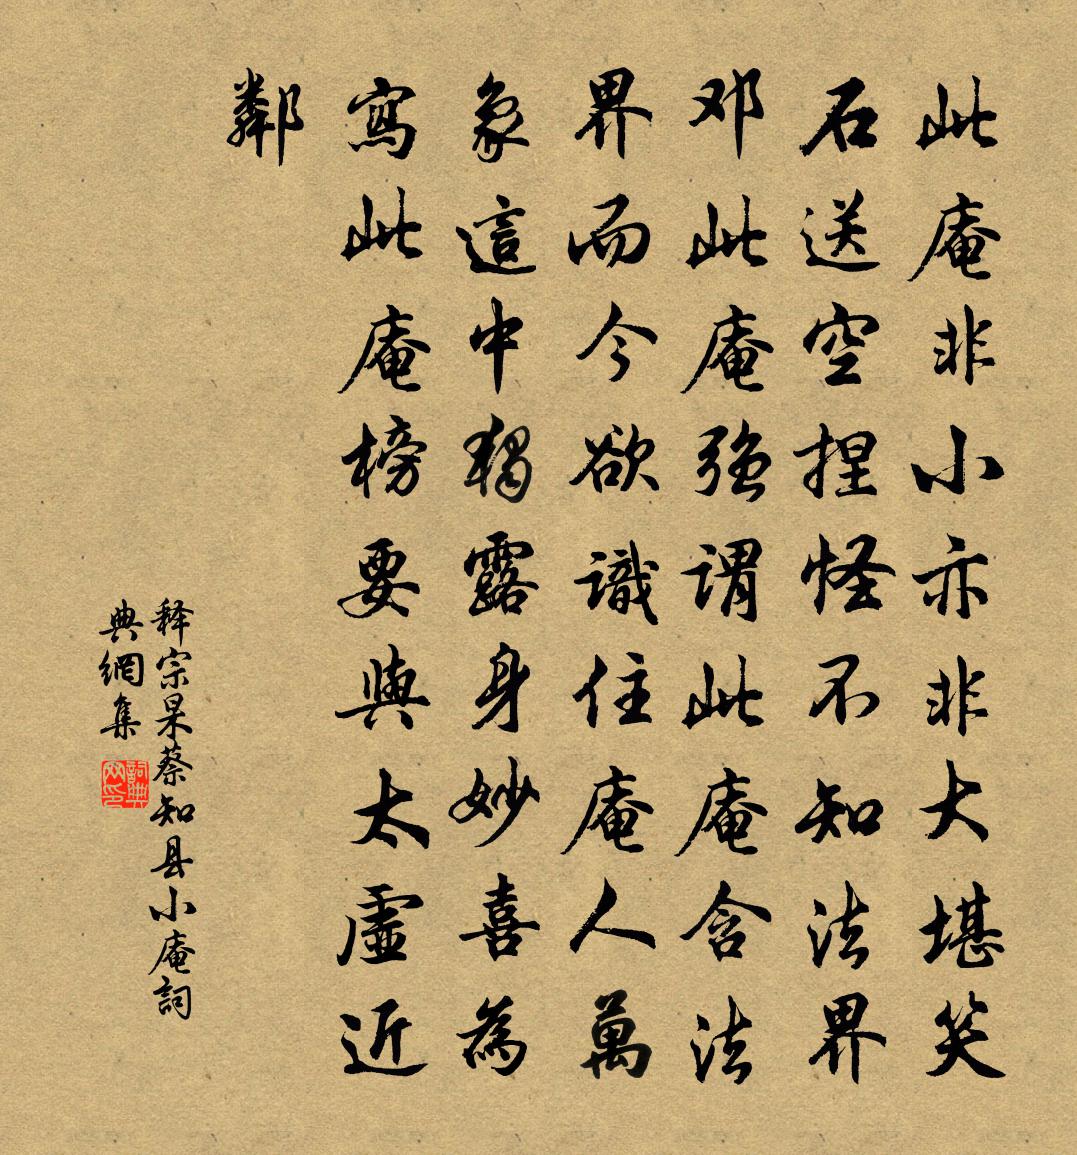 此庵非小亦非大堪笑
石送空捏怪不知法界
邓此庵强谓此庵含法
界而今欲識住庵人萬
象這中獨露身妙喜為
寫此庵榜要與太虛近
鄰
释宗杲蔡知县小庵詞
典網集
詞典网印